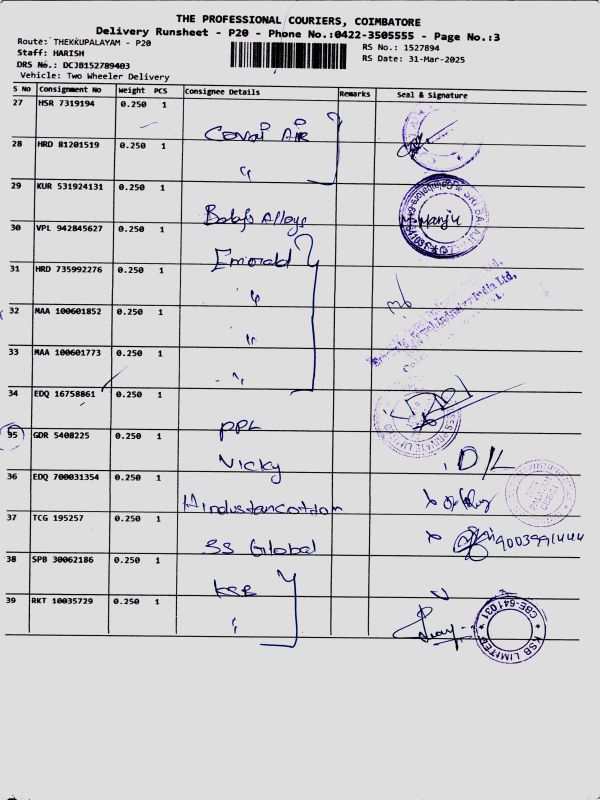 THE PROFESSIONAL COURIERS, COIMBATORE
Delivery Runsheet - P20 - Phone No.:0422-3505555 - Page No.:3
Route: THEKKUPALAYAM - P20
Staff: HARISH
DRS No.: DCJB152789403
Vehicle: Two Wheeler Delivery
RS No.: 1527894
RS Date: 31-Mar-2025
S No Consignment No Weight PCS Consignee Details Remarks Seal & Signature
27 HSR 7319194 0.250 1 Covai Air
28 HRD 81201519 0.250 1 "
29 KUR 531924131 0.250 1 Balaji Alloys Manju
30 VPL 942845627 0.250 1 Emerald
31 HRD 735992276 0.250 1 "
32 MAA 100601852 0.250 1 "
33 MAA 100601773 0.250 1 "
34 EDQ 16758861 0.250 1 PPL
35 GDR 5408225 0.250 1 Vicky D/L
36 EDQ 700031354 0.250 1 Hindustancotton
37 TCG 195257 0.250 1 SS Global 9003991444
38 SPB 30062186 0.250 1 KSB
39 RKT 10035729 0.250 1 "
KSB LIMITED * CBE-641031 *